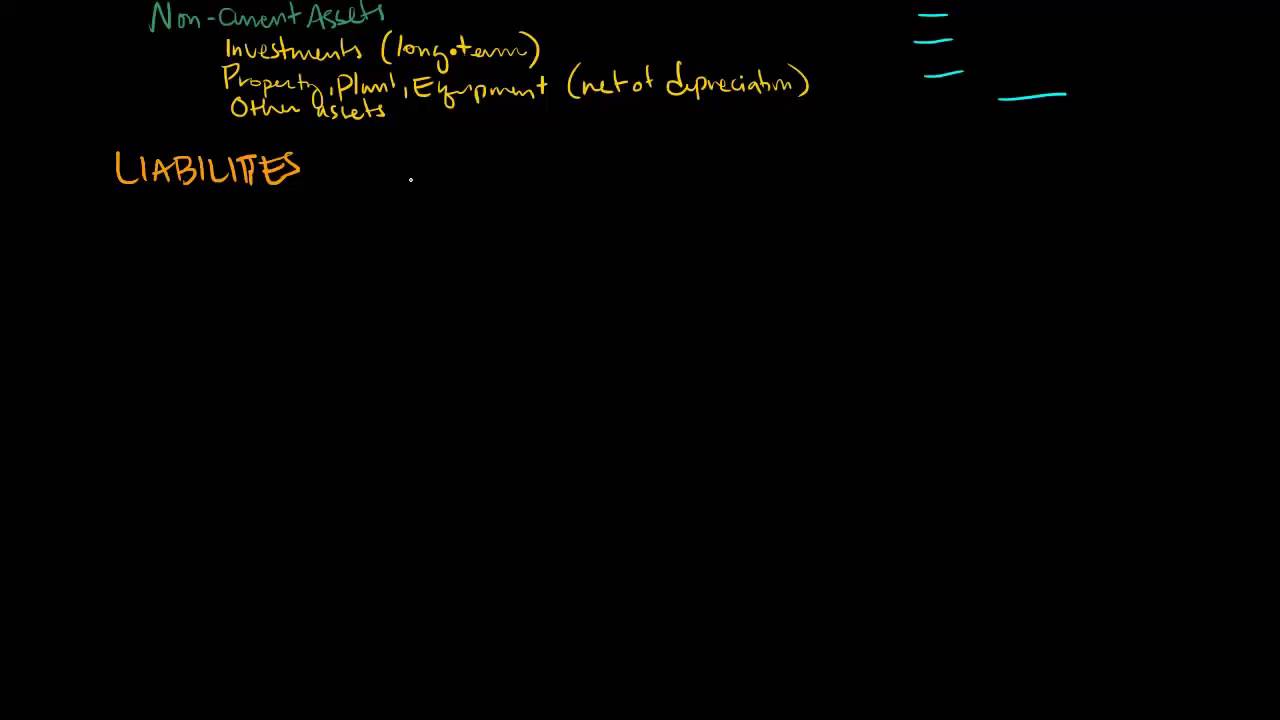 Non-Current Assets
Investments (long-term)
Property, Plant, Equipment (net of depreciation)
Other assets
LIABILITIES